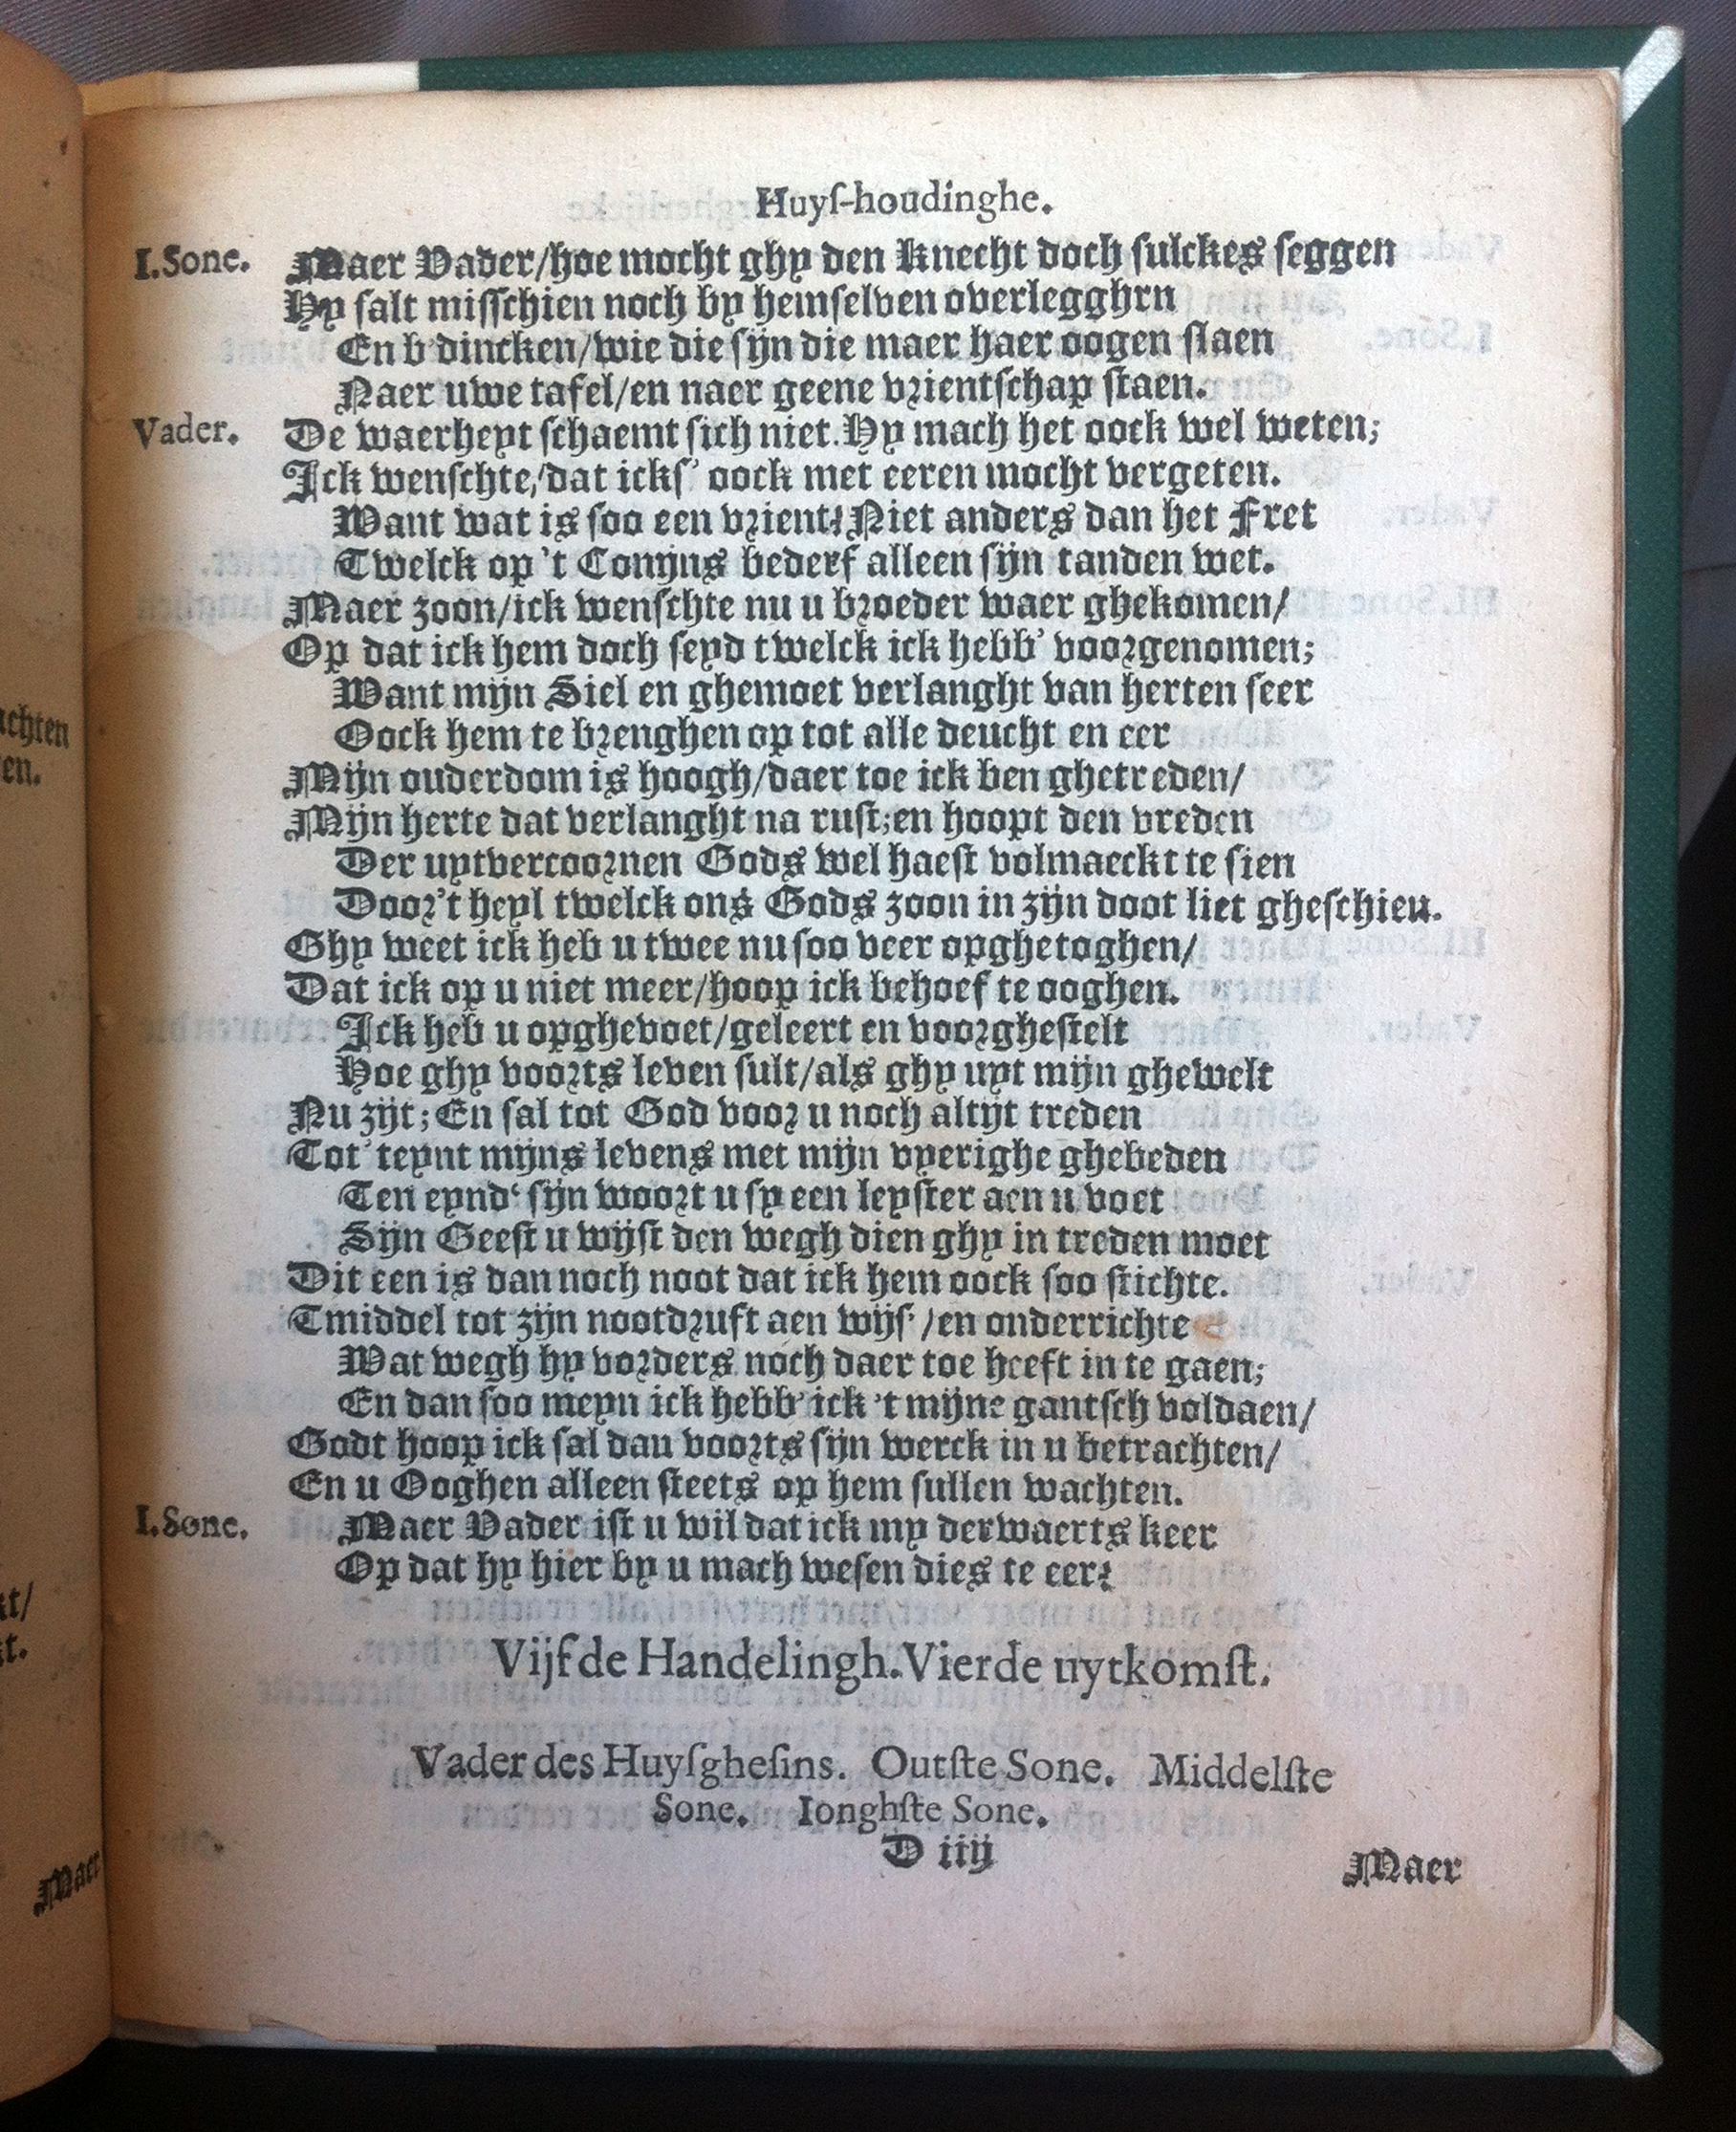 Huyſ-houdinghe.
I.Sone. Maer Vader/hoe mocht ghy den Knecht doch ſulckes ſeggen
Hy ſalt miſſchien noch by hemſelven overlegghrn
En b'dincken/wie die ſijn die maer haer oogen ſlaen
Naer uwe tafel/en naer geene vrientſchap ſtaen.
Vader. De waerheyt ſchaemt ſich niet.Hy mach het oock wel weten;
Ick wenſchte/dat ickſ' oock met eeren mocht vergeten.
Want wat is ſoo een vrient? Niet anders dan het Fret
Twelck op 't Conijns bederf alleen ſijn tanden wet.
Maer zoon/ick wenſchte nu u broeder waer ghekomen/
Op dat ick hem doch ſeyd twelck ick hebb' voorgenomen;
Want mijn Siel en ghemoet verlanght van herten ſeer
Oock hem te brenghen op tot alle deucht en eer
Mijn ouderdom is hoogh/daer toe ick ben ghetreden/
Mijn herte dat verlanght na ruſt;en hoopt den vreden
Der uytvercoornen Gods wel haeſt volmaeckt te ſien
Door't heyl twelck ons Gods zoon in zijn doot liet gheſchien.
Ghy weet ick heb u twee nu ſoo veer opghetoghen/
Dat ick op u niet meer/hoop ick behoef te ooghen.
Ick heb u opghevoet/geleert en voorgheſtelt
Hoe ghy voorts leven ſult/als ghy uyt mijn ghewelt
Nu zijt; En ſal tot God voor u noch altijt treden
Tot'teynt mijns levens met mijn vyerighe ghebeden
Ten eynd' ſijn woort u ſy een leyſter aen u voet
Sijn Geeſt u wijſt den wegh dien ghy in treden moet
Dit een is dan noch noot dat ick hem oock ſoo ſtichte.
Tmiddel tot zijn nootdruft aen wijſ' /en onderrichte
Wat wegh hy vorders noch daer toe heeft in te gaen;
En dan ſoo meyn ick hebb' ick 't mijne gantſch voldaen/
Godt hoop ick ſal dau voorts ſijn werck in u betrachten/
En u Ooghen alleen ſteets op hem ſullen wachten.
I.Sone. Maer Vader iſt u wil dat ick my derwaerts keer
Op dat hy hier by u mach weſen dies te eer?
Vijfde Handelingh. Vierde uytkomſt.
Vader des Huyſgheſins. Outſte Sone. Middelſte
Sone. Ionghſte Sone.
D iij
Maer
achten
en.
kt/
kt.
Maer